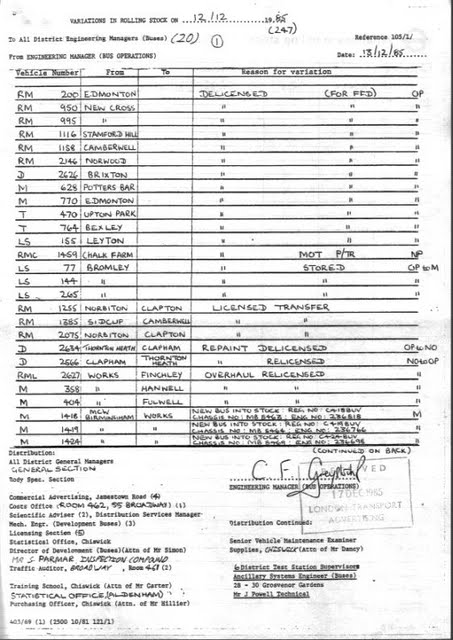 VARIATIONS IN ROLLING STOCK ON 12/12 1985
(247)
To All District Engineering Managers (Buses) (20) (1) Reference 105/1/
From ENGINEERING MANAGER (BUS OPERATIONS) Date: 13/12/85
Vehicle Number From To Reason for variation
RM 200 EDMONTON DELICENSED (FOR FFD) OP
RM 950 NEW CROSS " " "
RM 995 " " " "
RM 1116 STAMFORD HILL " " "
RM 1158 CAMBERWELL " " "
RM 2146 NORWOOD " " "
D 2626 BRIXTON " " "
M 628 POTTERS BAR " " "
M 770 EDMONTON " " "
T 470 UPTON PARK " " "
T 764 BEXLEY " " "
LS 155 LEYTON " " "
RMC 1459 CHALK FARM " MOT P/TR NP
LS 77 BROMLEY " STORED OP to M
LS 144 " " " "
LS 265 " " " "
RM 1255 NORBITON CLAPTON LICENSED TRANSFER
RM 1385 SIDCUP CAMBERWELL " "
RM 2075 NORBITON CLAPTON " "
D 2634 THORNTON HEATH CLAPHAM REPAINT DELICENSED OP to NO
D 2566 CLAPHAM THORNTON HEATH " RELICENSED NO to OP
RML 2627 WORKS FINCHLEY OVERHAUL RELICENSED
M 358 " HANWELL " "
M 404 " FULWELL " "
M 1418 MCW BIRMINGHAM WORKS NEW BUS INTO STOCK: REG NO: C418BUV M
CHASSIS NO: MB 8463: ENG NO: 236818
M 1419 " " NEW BUS INTO STOCK: REG NO: C419BUV "
CHASSIS NO: MB 8464: ENG NO: 236766
M 1424 " " NEW BUS INTO STOCK: REG NO: C424BUV "
CHASSIS NO: ENG NO: 236695
Distribution: (CONTINUED ON BACK)
All District General Managers
GENERAL SECTION
Body Spec. Section
C. F.
ENGINEERING MANAGER (BUS OPERATIONS)
VED
17 DEC 1985
LONDON TRANSPORT
ADVERTISING
Commercial Advertising, Jamestown Road (4)
Costs Office (ROOM 462, 55 BROADWAY) (1)
Scientific Adviser (2), Distribution Services Manager
Mech. Engr. (Development Buses) (3) Distribution Continued:
Licensing Section (5)
Statistical Office, Chiswick Senior Vehicle Maintenance Examiner
Director of Development (Buses)(Attn of Mr Simon) Supplies, CHISWICK (Attn of Mr Dancy)
MR S. PARMAR INSPECTION COMPOUND
Traffic Auditor, BROADWAY, Room (2) 6 District Test Station Supervisors
Ancillary Systems Engineer (Buses)
Training School, Chiswick (Attn of Mr Carter) 28 - 30 Grosvenor Gardens
STATISTICAL OFFICE, (ALDENHAM) Mr J Powell Technical
Purchasing Officer, Chiswick (Attn. of Mr Hillier)
403/69 (1) (2500 10/81 121/1)